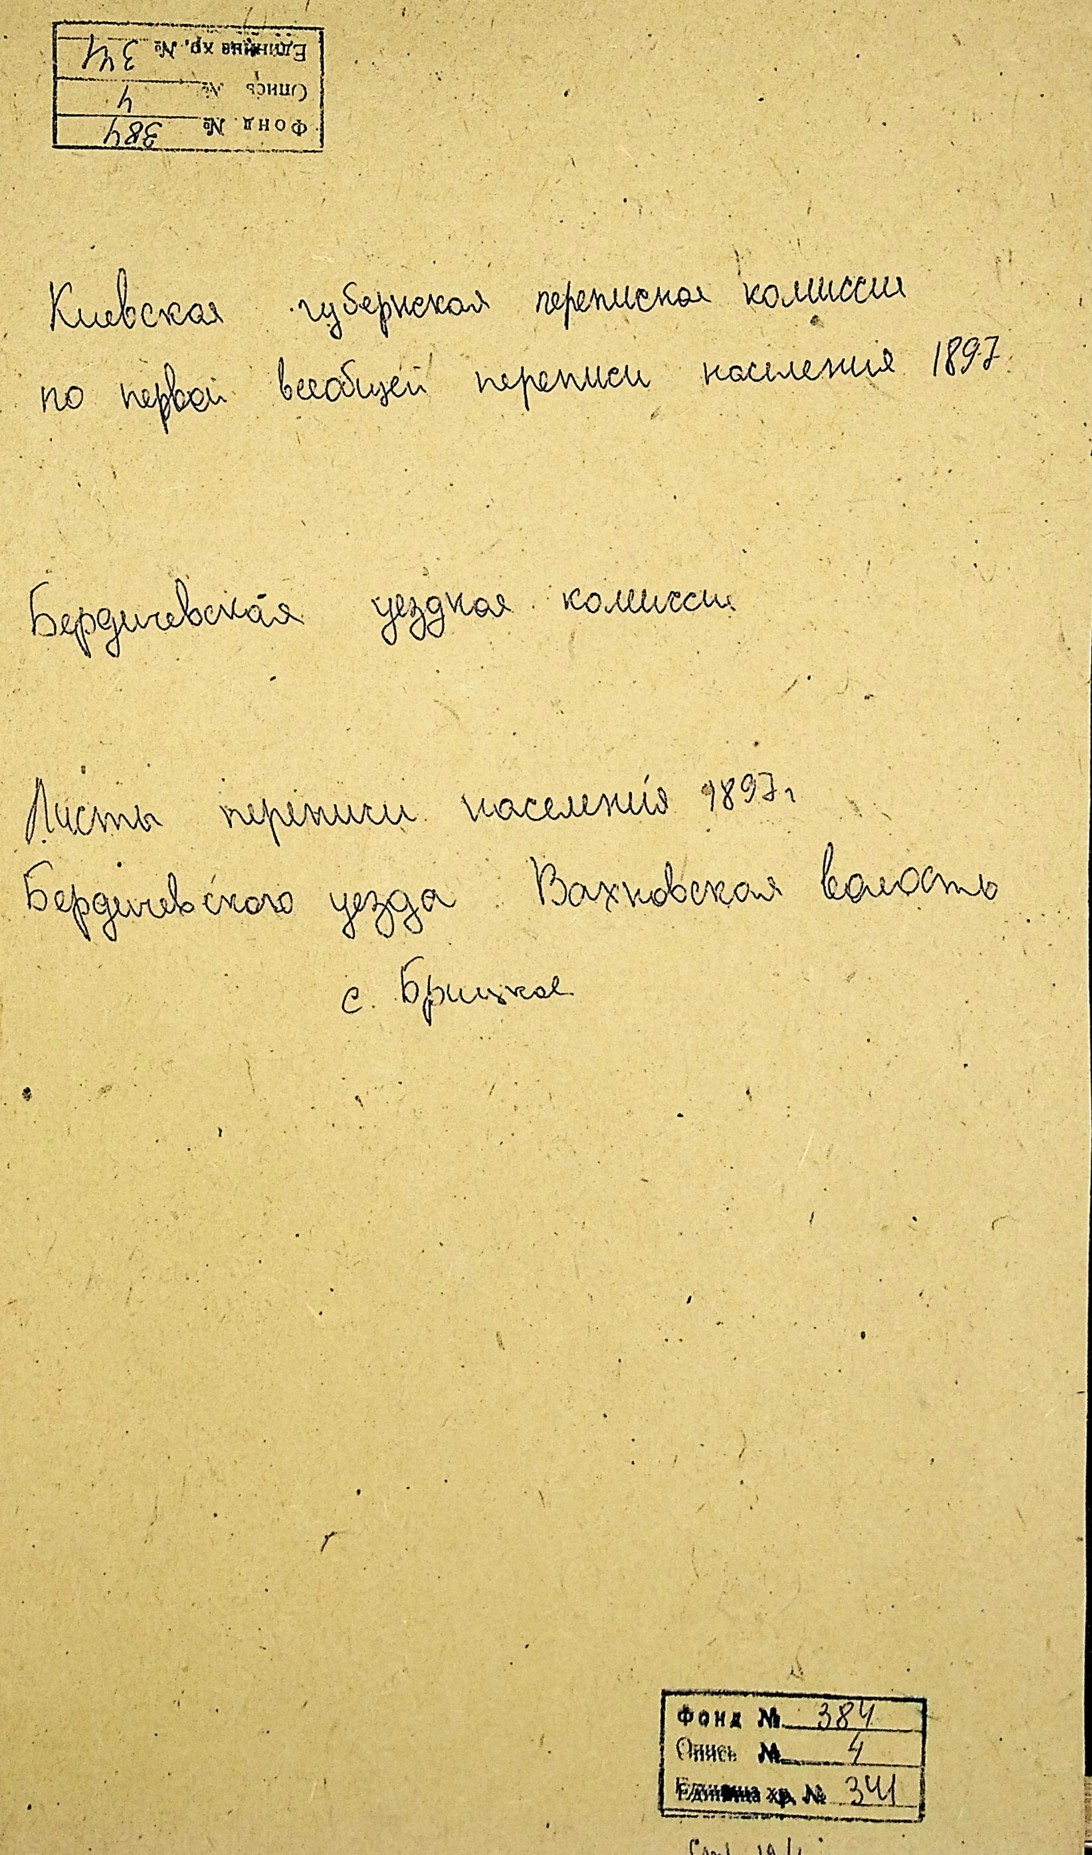 Фонд № 384
Опись № 4
Единица хр. № 341
Киевская губернская переписная комиссия
по первой всеобщей переписи населения 1897
Бердичевская уездная комиссия
Листы переписи населения 1897г
Бердичевского уезда Вахновская волость
с. Брицкое
Фонд № 384
Опись № 4
Единица хр. № 341